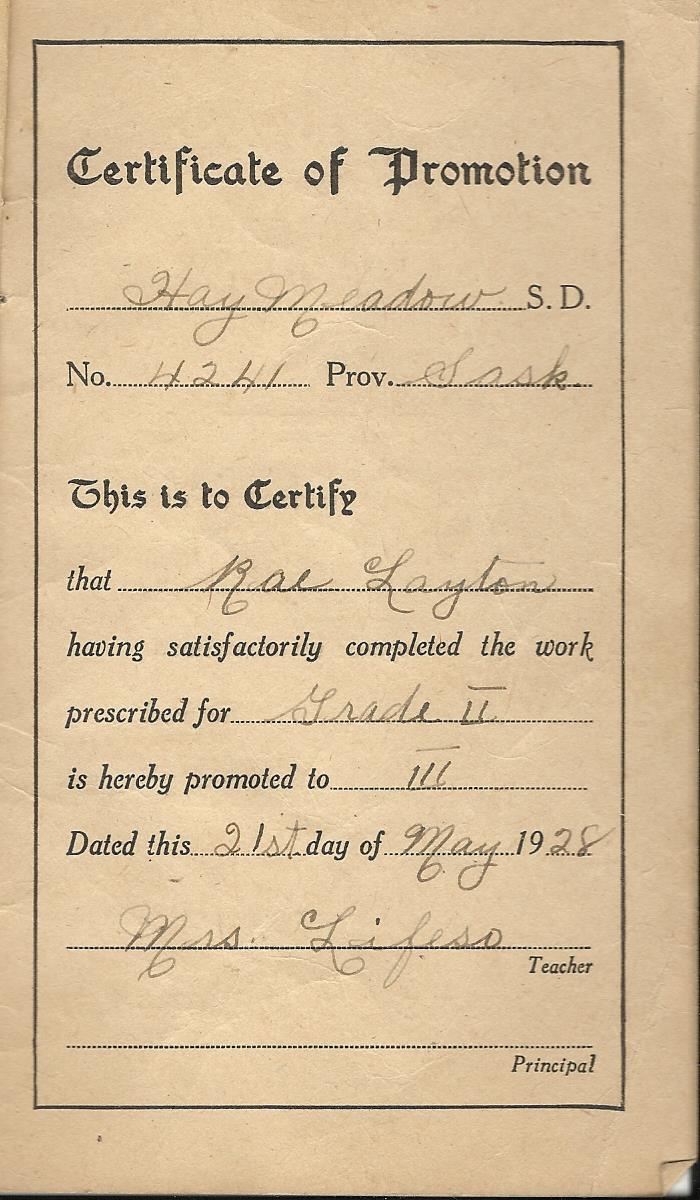 Certificate of Promotion
Hay Meadow S. D.
No. 4241 Prov. Sask.
This is to Certify
that Rae Layton
having satisfactorily completed the work
prescribed for Grade II
is hereby promoted to III
Dated this 21st day of May 1928
Mrs. Lifeso
Teacher
Principal